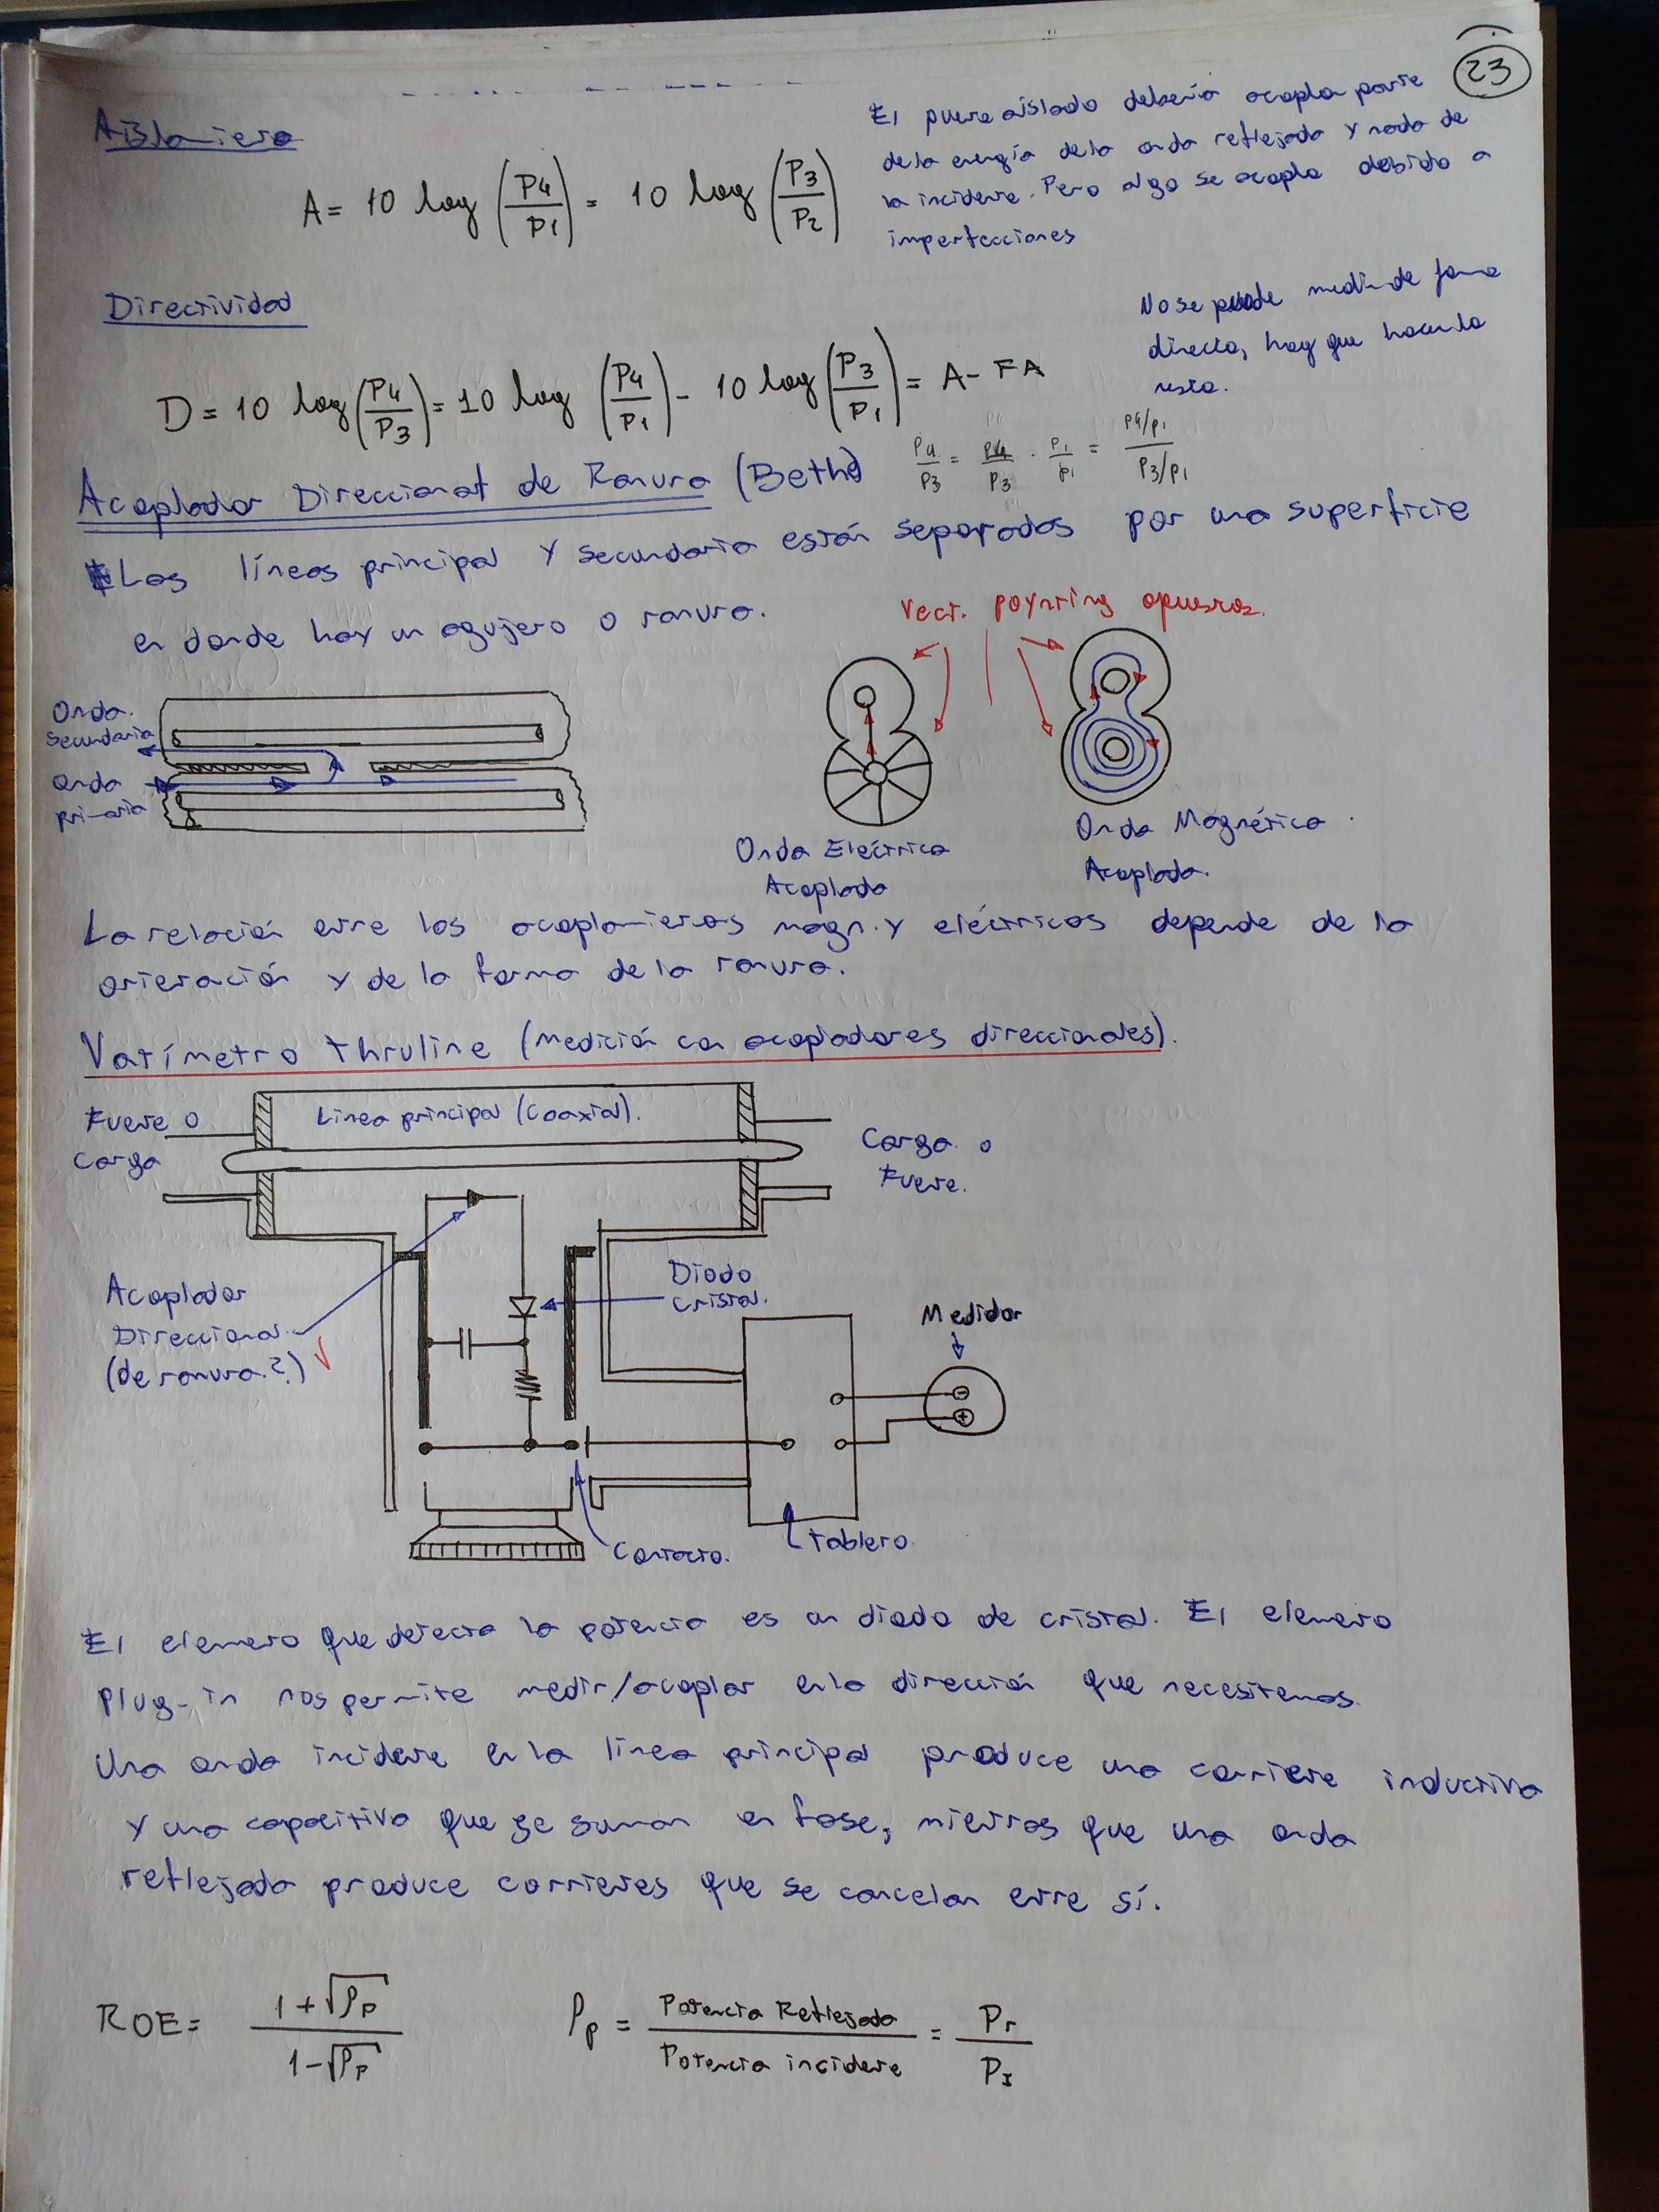 23
Aislamiento
A = 10 log (P4/P1) = 10 log (P3/P2)
El puerto aislado debería acoplar parte
de la energía de la onda reflejada y nada de
la incidente. Pero algo se acopla debido a
imperfecciones
Directividad
D = 10 log (P4/P3) = 10 log (P4/P1) - 10 log (P3/P1) = A - FA
No se puede medir de forma
directa, hay que hacer la
resta.
P4/P3 = P4/P3 · P1/P1 = (P4/P1)/(P3/P1)
Acoplador Direccional de Ranura (Bethe)
Las líneas principal y secundaria están separadas por una superficie
en donde hay un agujero o ranura.
Vect. poynting opuestos.
Onda
Secundaria
Onda
primaria
Onda Eléctrica
Acoplada
Onda Magnética
Acoplada.
La relación entre los acoplamientos magn. y eléctricos depende de la
orientación y de la forma de la ranura.
Vatímetro thruline (medición con acopladores direccionales).
Fuente o
Carga
Línea principal (coaxial).
Carga o
Fuente.
Acoplador
Direccional
(de ranura?) √
Diodo
Cristal.
Medidor
-
+
Contacto.
tablero.
El elemento que detecta la potencia es un diodo de cristal. El elemento
plug-in nos permite medir/acoplar en la dirección que necesitemos.
Una onda incidente en la línea principal produce una corriente inductiva
y una capacitiva que se suman en fase, mientras que una onda
reflejada produce corrientes que se cancelan entre sí.
ROE = (1+√ρp)/(1-√ρp)
ρp = Potencia Reflejada/Potencia incidente = Pr/PI